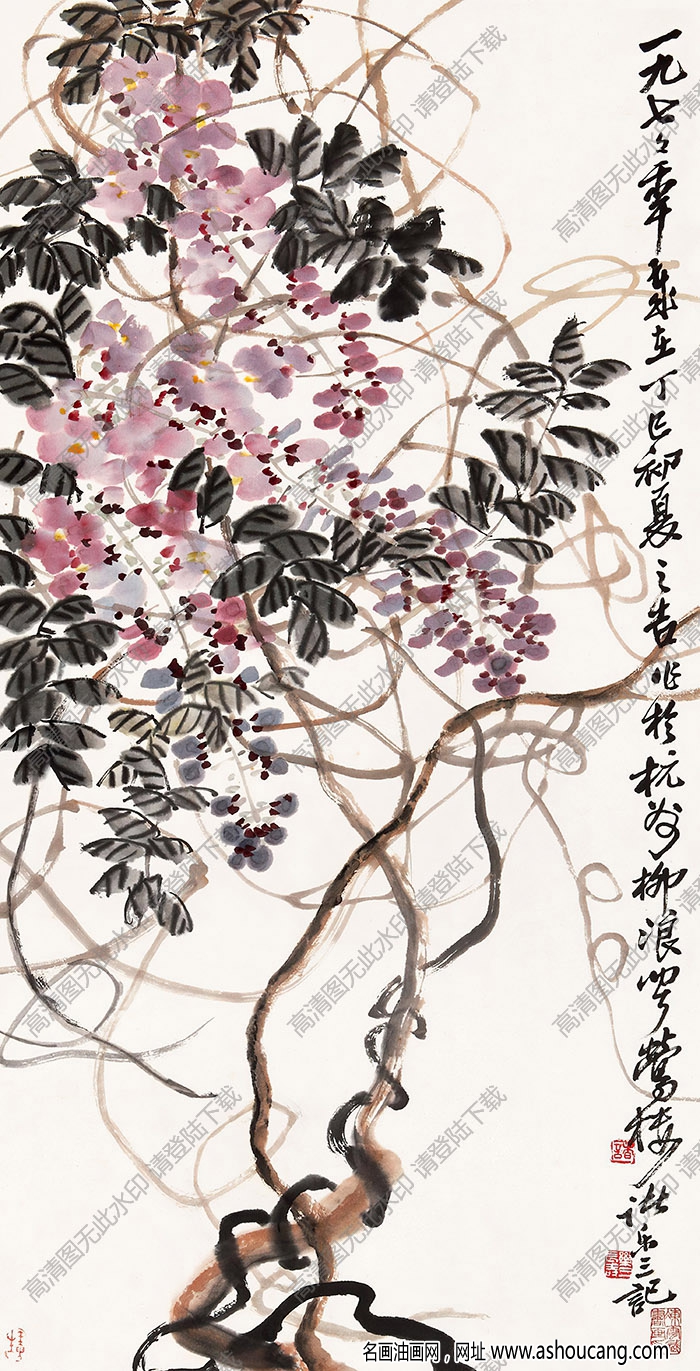 一九七七年岁在丁巳初夏之吉作於杭州柳浪闻莺楼
诸乐三记
高清图无此水印 请登陆下载
名画油画网，网址 www.ashoucang.com